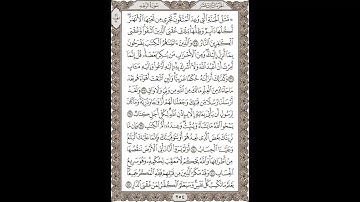 سورة الرعد
الجزء الثالث عشر
۞ مَّثَلُ ٱلْجَنَّةِ ٱلَّتِى وُعِدَ ٱلْمُتَّقُونَ تَجْرِى مِن تَحْتِهَا ٱلْأَنْهَٰرُ
أُكُلُهَا دَآئِمٌ وَظِلُّهَا تِلْكَ عُقْبَى ٱلَّذِينَ ٱتَّقَوا۟ وَّعُقْبَى
ٱلْكَٰفِرِينَ ٱلنَّارُ ٣٥ وَٱلَّذِينَ ءَاتَيْنَٰهُمُ ٱلْكِتَٰبَ يَفْرَحُونَ
بِمَآ أُنزِلَ إِلَيْكَ وَمِنَ ٱلْأَحْزَابِ مَن يُنكِرُ بَعْضَهُۥ قُلْ إِنَّمَآ
أُمِرْتُ أَنْ أَعْبُدَ ٱللَّهَ وَلَآ أُشْرِكَ بِهِۦٓ إِلَيْهِ أَدْعُوا۟ وَإِلَيْهِ مَـَٔابِ
٣٦ وَكَذَٰلِكَ أَنزَلْنَٰهُ حُكْمًا عَرَبِيًّا وَلَئِنِ ٱتَّبَعْتَ أَهْوَآءَهُم بَعْدَ
مَا جَآءَكَ مِنَ ٱلْعِلْمِ مَا لَكَ مِنَ ٱللَّهِ مِن وَلِىٍّ وَلَا وَاقٍ ٣٧
وَلَقَدْ أَرْسَلْنَا رُسُلًا مِّن قَبْلِكَ وَجَعَلْنَا لَهُمْ أَزْوَٰجًا وَذُرِّيَّةً وَمَا كَانَ
لِرَسُولٍ أَن يَأْتِىَ بِـَٔايَةٍ إِلَّا بِإِذْنِ ٱللَّهِ لِكُلِّ أَجَلٍ كِتَابٌ ٣٨
يَمْحُوا۟ ٱللَّهُ مَا يَشَآءُ وَيُثْبِتُ وَعِندَهُۥٓ أُمُّ ٱلْكِتَٰبِ ٣٩ وَإِن مَّا نُرِيَنَّكَ
بَعْضَ ٱلَّذِى نَعِدُهُمْ أَوْ نَتَوَفَّيَنَّكَ فَإِنَّمَا عَلَيْكَ ٱلْبَلَٰغُ
وَعَلَيْنَا ٱلْحِسَابُ ٤٠ أَوَلَمْ يَرَوْا۟ أَنَّا نَأْتِى ٱلْأَرْضَ نَنقُصُهَا
مِنْ أَطْرَافِهَا وَٱللَّهُ يَحْكُمُ لَا مُعَقِّبَ لِحُكْمِهِۦ وَهُوَ سَرِيعُ
ٱلْحِسَابِ ٤١ وَقَدْ مَكَرَ ٱلَّذِينَ مِن قَبْلِهِمْ فَلِلَّهِ ٱلْمَكْرُ جَمِيعًا
يَعْلَمُ مَا تَكْسِبُ كُلُّ نَفْسٍ وَسَيَعْلَمُ ٱلْكُفَّٰرُ لِمَنْ عُقْبَى ٱلدَّارِ ٤٢
٢٥٤